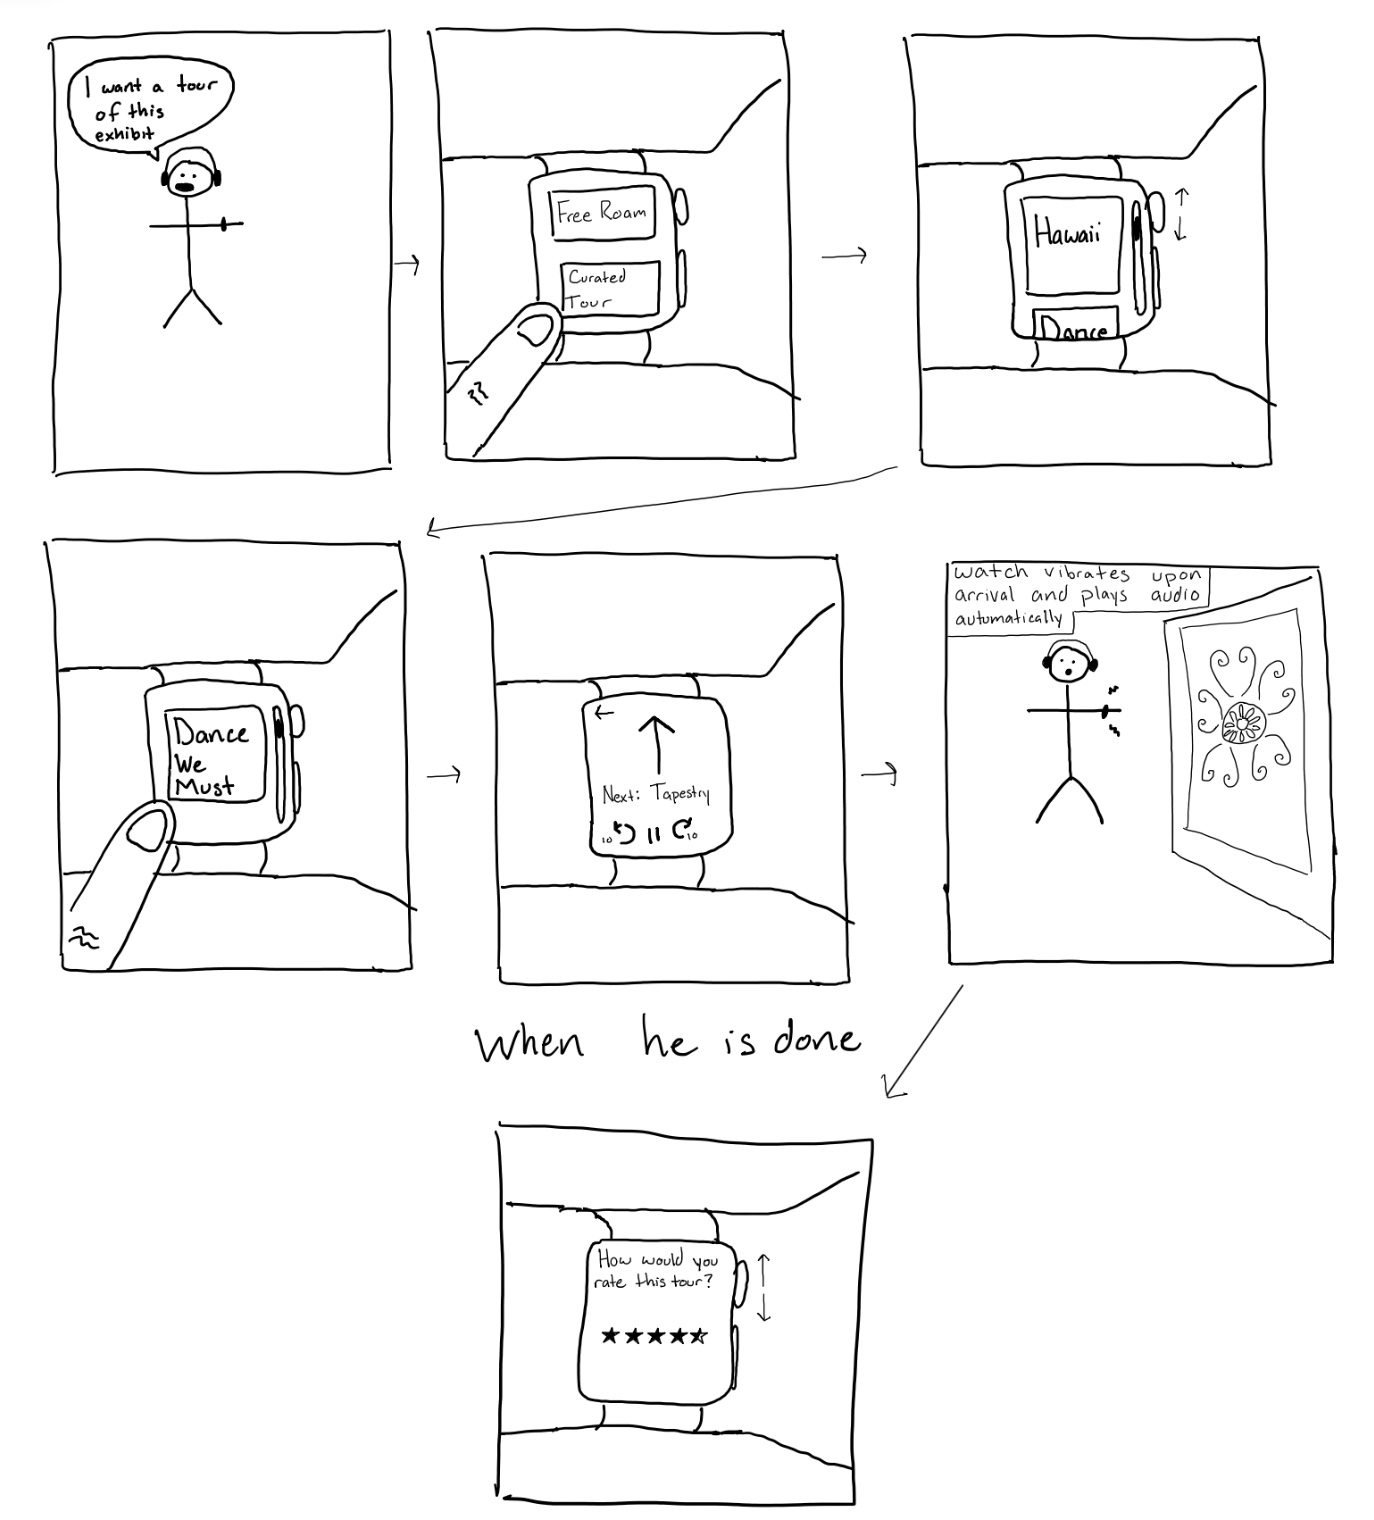 I want a tour
of this
exhibit
Free Roam
Curated
Tour
Hawaii
Dance
Dance
We
Must
Next: Tapestry
10 10
watch vibrates upon
arrival and plays audio
automatically
When he is done
How would you
rate this tour?